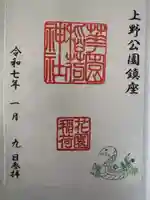 上野公園鎮座
花園稲荷
神社
花園
稲荷
令和七年一月九日参拝